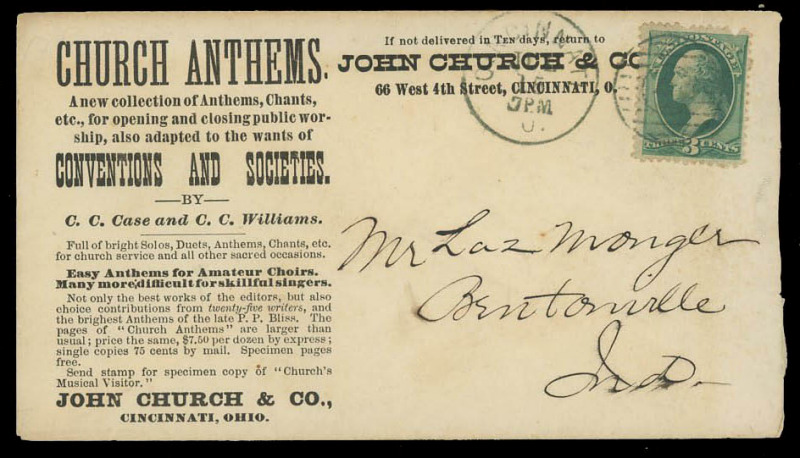 CHURCH ANTHEMS.
A new collection of Anthems, Chants,
etc., for opening and closing public wor-
ship, also adapted to the wants of
CONVENTIONS AND SOCIETIES.
—BY—
C. C. Case and C. C. Williams.
Full of bright Solos, Duets, Anthems, Chants, etc.
for church service and all other sacred occasions.
Easy Anthems for Amateur Choirs.
Many more difficult for skillful singers.
Not only the best works of the editors, but also
choice contributions from twenty-five writers, and
the brightest Anthems of the late P. P. Bliss. The
pages of "Church Anthems" are larger than
usual; price the same, $7,50 per dozen by express;
single copies 75 cents by mail. Specimen pages
free.
Send stamp for specimen copy of "Church's
Musical Visitor."
JOHN CHURCH & CO.,
CINCINNATI, OHIO.
If not delivered in TEN days, return to
JOHN CHURCH & CO
66 West 4th Street, CINCINNATI, O.
CINCINNATI
PM
O.
U.S. POSTAGE
3 CENTS
Mr Laz Monger
Bentonville
Ind.